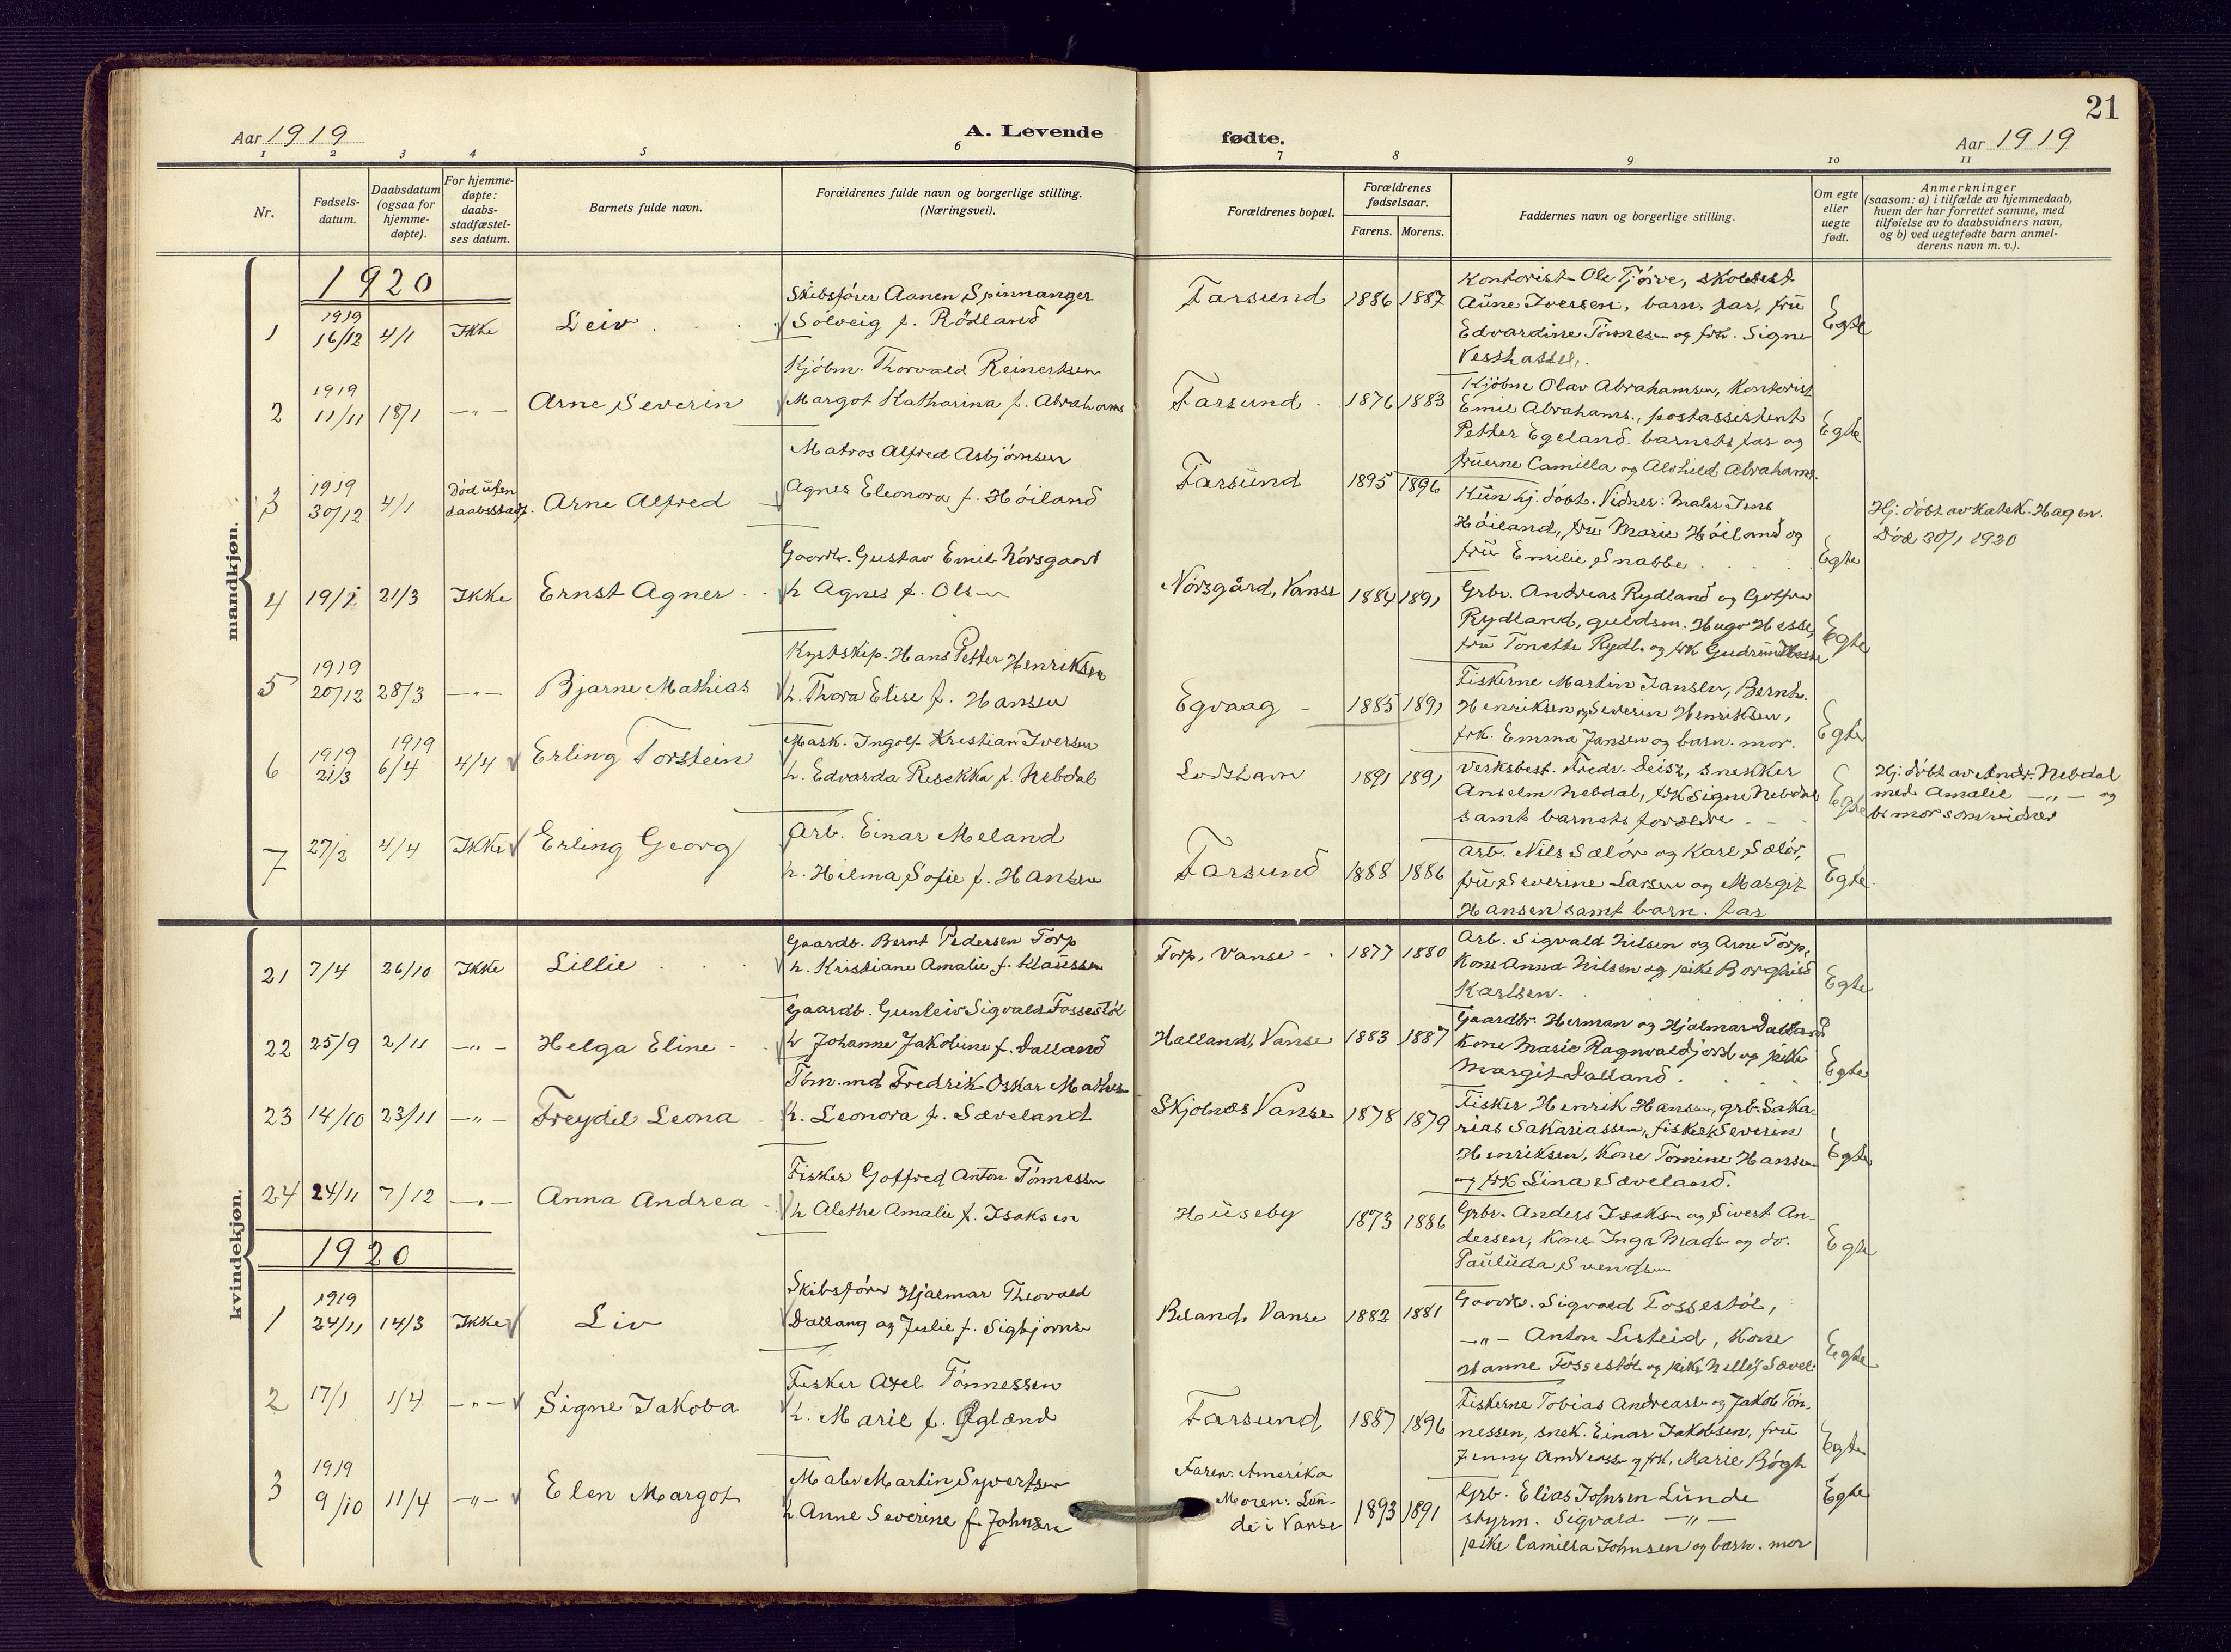 21
Aar 1919
A. Levende fødte.
Aar 1919
1 2 3 4 5 6 7 8 9 10 11
Nr.
Fødsels-
datum.
Daabsdatum
(ogsaa for
hjemme-
døpte).
For hjemme-
døpte:
daabs-
stadfæstel-
ses datum.
Barnets fulde navn.
Forældrenes fulde navn og borgerlige stilling.
(Næringsvei).
Forældrenes bopæl.
Forældrenes
fødselsaar.
Farens. Morens.
Faddernes navn og borgerlige stilling.
Om egte
eller
uegte
født.
Anmerkninger
(saasom: a) i tilfælde av hjemmedaab,
hvem der har forrettet samme, med
tilføielse av to daabsvidners navn,
og b) ved uegtefødte barn anmel-
derens navn m. v.).
mandkjøn.
1920
1
1919
16/12
4/1
Ikke
Leiv
Skibsfører Aanen Spinnanger
Solveig f. Rödland
Farsund
1886 1887
Kontorist Ole Tjörve, skobest
Aüne Iversen, barn. far, frü
Edvardine Tönnesen og frk. Signe
Vesthassel.
Egte
2
1919
11/11
18/1
—„—
Arne Severin
Kjöbm. Thorvald Reinertsen
Margot Katharina f. Abrahams
Farsund
1876 1883
Kjöbm Olav Abrahamsen, Kontorist
Emil Abrahams., postassistent
Petter Egeland, barnets far og
früerne Camilla og Alvhild Abrahams.
Egte
3
1919
30/12
4/1
Död üten
daabsstadf.
Arne Alfred
Matros Alfred Asbjörnsen
Agnes Eleonora f. Höiland
Farsünd
1895 1896
Kün hj. döbt. Vidner: Maler Jens
Höiland, frü Marie Höiland og
frü Emilie Snabbe
Egte
Hj. döbt av Katek. Hagen.
Död 30/1 1920
4
19/1
21/3
Ikke
Ernst Agner
Gaardbr. Gustav Emil Nörsgaard
h Agnes f. Olsen
Nörsgård, Vanse
1884 1891
Grbr. Andreas Rydland og Gotfred
Rydland, guldsm. Hugo Hesse,
frü Tonette Rydl. og frk Gudrün Hesse
Egte
5
1919
20/12
28/3
—„—
Bjarne Mathias
Kystskip. Hans Petter Henriksen
h. Thora Elise f. Hansen
Egvaag
1885 1891
Fiskerne Martin Jansen, Bernh.
Henriksen og Severin Henriksen,
frk. Emma Jansen og barn. mor.
Egte
6
1919
21/3
1919
6/4
4/4
Erling Torstein
Mask. Ingolf Kristian Iversen
h. Edvarda Rebekka f. Nebdal
Lodshavn
1891 1891
Verksbest. Fredr. Deisz, snekker
Anselm Nebdal, frk Signe Nebdal
samt barnets forældre
Egte
Hj. döbt av Andr. Nebdal
med Amalie —„— og
b. mor som vidner
7
27/2
4/4
Ikke
Erling Georg
Arb. Einar Meland
h. Hilma Sofie f. Hansen
Farsund
1888 1886
Arb. Nils Sælör og Karl Sælör,
frü Severine Larsen og Margit
Hansen samt barn. far
Egte
kvindekjøn.
21
7/4
26/10
Ikke
Lillie
Gaardb. Bernt Pedersen Torp
h. Kristiane Amalie f. Klaüssen
Torp, Vanse
1877 1880
Arb. Sigvald Nilsen og Arne Torp,
Kone Anna Nilsen og pike Borghild
Karlsen.
Egte
22
25/9
2/11
—„—
Helga Eline
Gaardb. Gunleiv Sigvald Fossestöl
h Johanne Jakobine f. Dalland
Halland, Vanse
1883 1887
Gaardbr. Herman og Hjalmar Dalland
Kone Marie Ragnvaldjord og pike
Margit Dalland
Egte
23
14/10
23/11
—„—
Freydil Leona
Töm.md Fredrik Oskar Mathisen
h. Leonora f. Sæveland
Skjolnes Vanse
1878 1879
Fisker Henrik Hansen, grb. Saka-
rias Sakariassen, fisker Severin
Henriksen, Kone Tomine Hansen
og frk Lina Sæveland.
Egte
24
24/11
7/12
—„—
Anna Andrea
Fisker Gotfred Anton Tönnessen
h Alethe Amalie f. Isaksen
Hüseby
1873 1886
Grbr. Anders Isaksen og Sivert An-
dersen, Kone Inga Madsen og do.
Paulüda Svendsen
Egte
1920
1
1919
24/11
14/3
Ikke
Liv
Skibsförer Hjalmar Theovald
Dallang og Julie f. Sigbjörnsen
Beland, Vanse
1882 1881
Gaardbr. Sigvald Fossestöl,
—„— Anton Listeid, Kone
Hanne Fossestöl og pike Nelly Sævel
Egte
2
17/1
1/4
—„—
Signe Jakoba
Fisker Axel Tönnessen
h. Marie f. Ögland
Farsund
1887 1896
Fiskerne Tobias Andreassen og Jakob Tön-
nessen, snek. Einar Jakobsen, frü
Jenny Andreassen og frk. Marie Bögh
Egte
3
1919
9/10
11/4
—„—
Elen Margot
Maler Martin Syvertsen
h Anne Severine f. Johnsen
Faren: Amerika
Moren: Lün-
de i Vanse
1893 1891
Grb. Elias Johnsen Lünde
styrm. Sigvald —„—
pike Camilla Johnsen og barn. mor
Egte